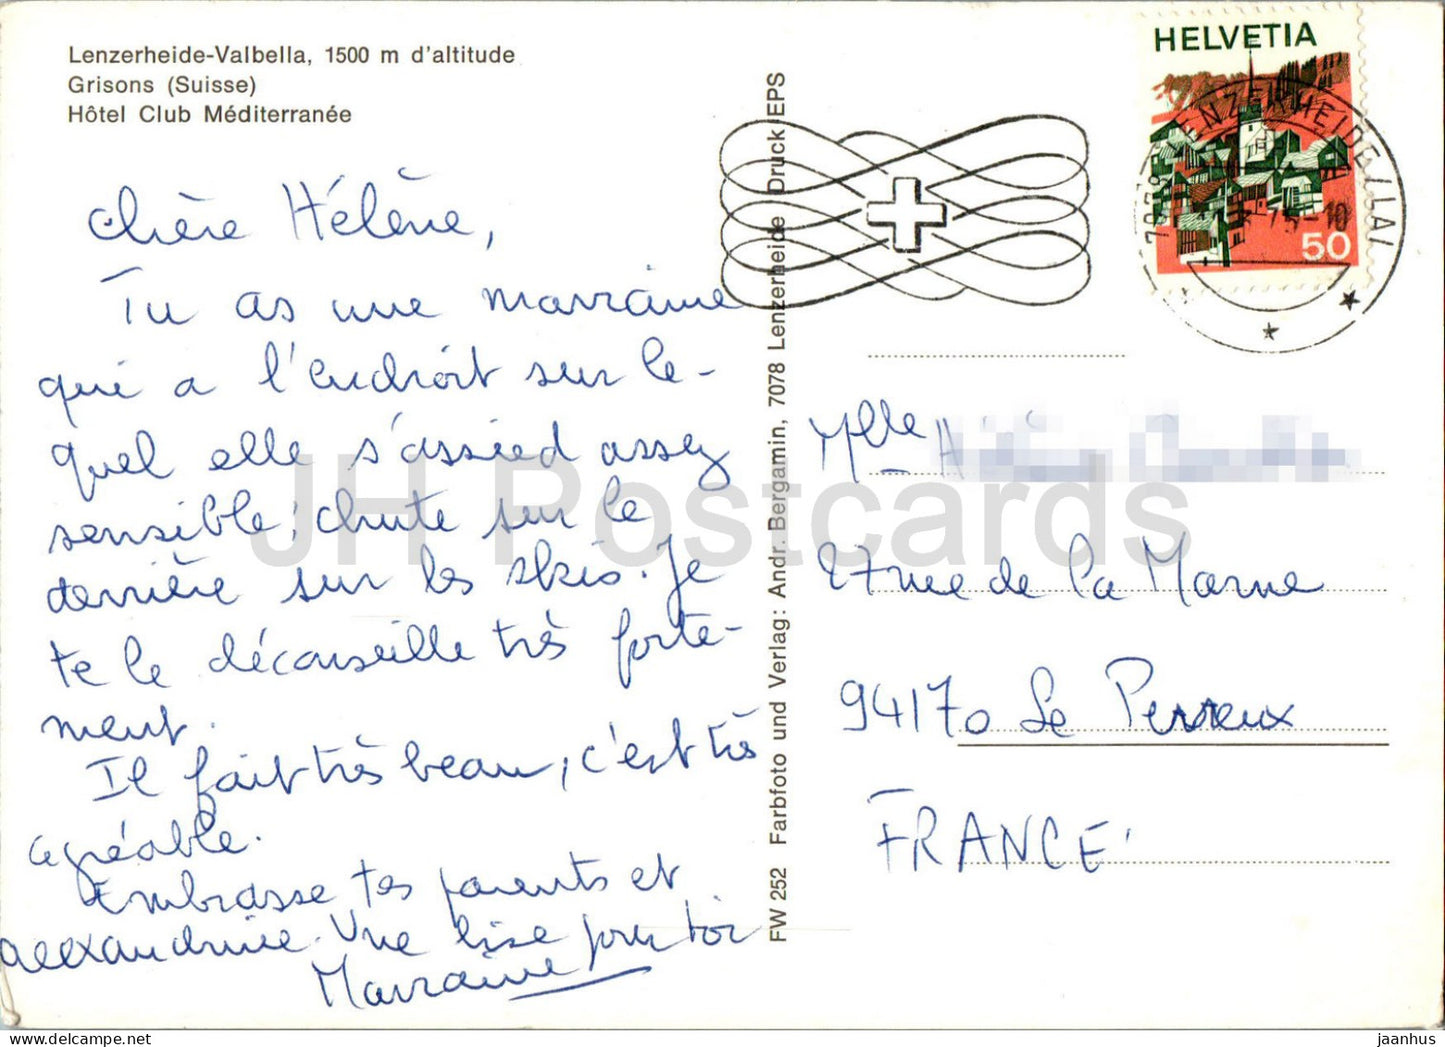 Lenzerheide-Valbella, 1500 m d'altitude
Grisons (Suisse)
Hôtel Club Méditerranée
chère Hélène,
Tu as une marraine
qui a l'endroit sur le-
quel elle s'assied assez
sensible ; chute sur le
derrière sur les skis. Je
te le déconseille très forte-
ment.
Il fait très beau, c'est très
agréable.
Embrasse tes parents et
alexandrine. Une bise pour toi
Marraine
FW 252 Farbfoto und Verlag: Andr. Bergamin, 7078 Lenzerheide Druck EPS
HELVETIA
50
7078 LENZERHEIDE/LAI
-10
Mlle
27 rue de la Marne
94170 Le Perreux
FRANCE
JH Postcards
jaanhus @ delcampe.net